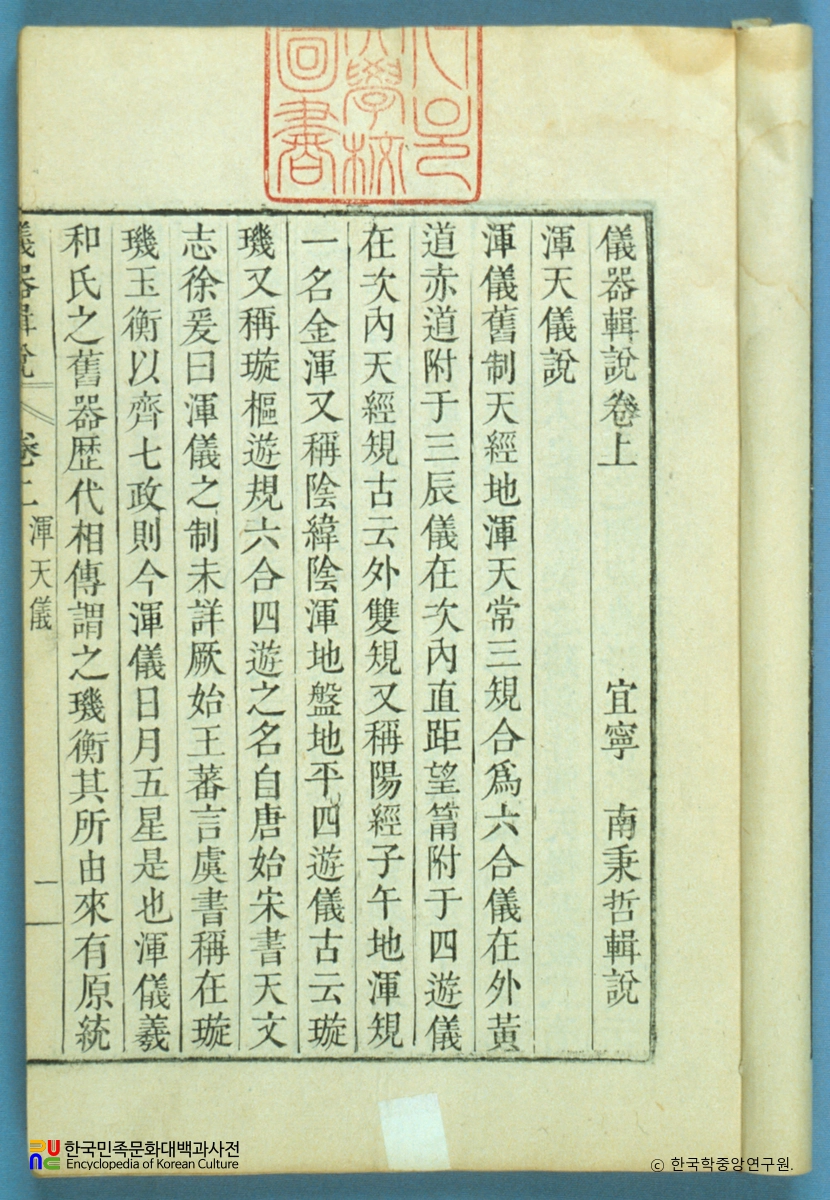 儀器輯說卷上 宜寧 南秉哲輯說
渾天儀說
渾儀舊制天經地渾天常三規合爲六合儀在外黃
道赤道附于三辰儀在次內直距望筩附于四遊儀
在次內天經規古云外雙規又稱陽經子午地渾規
一名金渾又稱陰緯陰渾地盤地平四遊儀古云璇
璣又稱璇樞遊規六合四遊之名自唐始宋書天文
志徐爰曰渾儀之制未詳厥始王蕃言虞書稱在璇
璣玉衡以齊七政則今渾儀日月五星是也渾儀羲
和氏之舊器歷代相傳謂之璣衡其所由來有原統
儀器輯說 卷上 渾天儀 一
學校
圖書
한국민족문화대백과사전
Encyclopedia of Korean Culture
ⓒ 한국학중앙연구원.